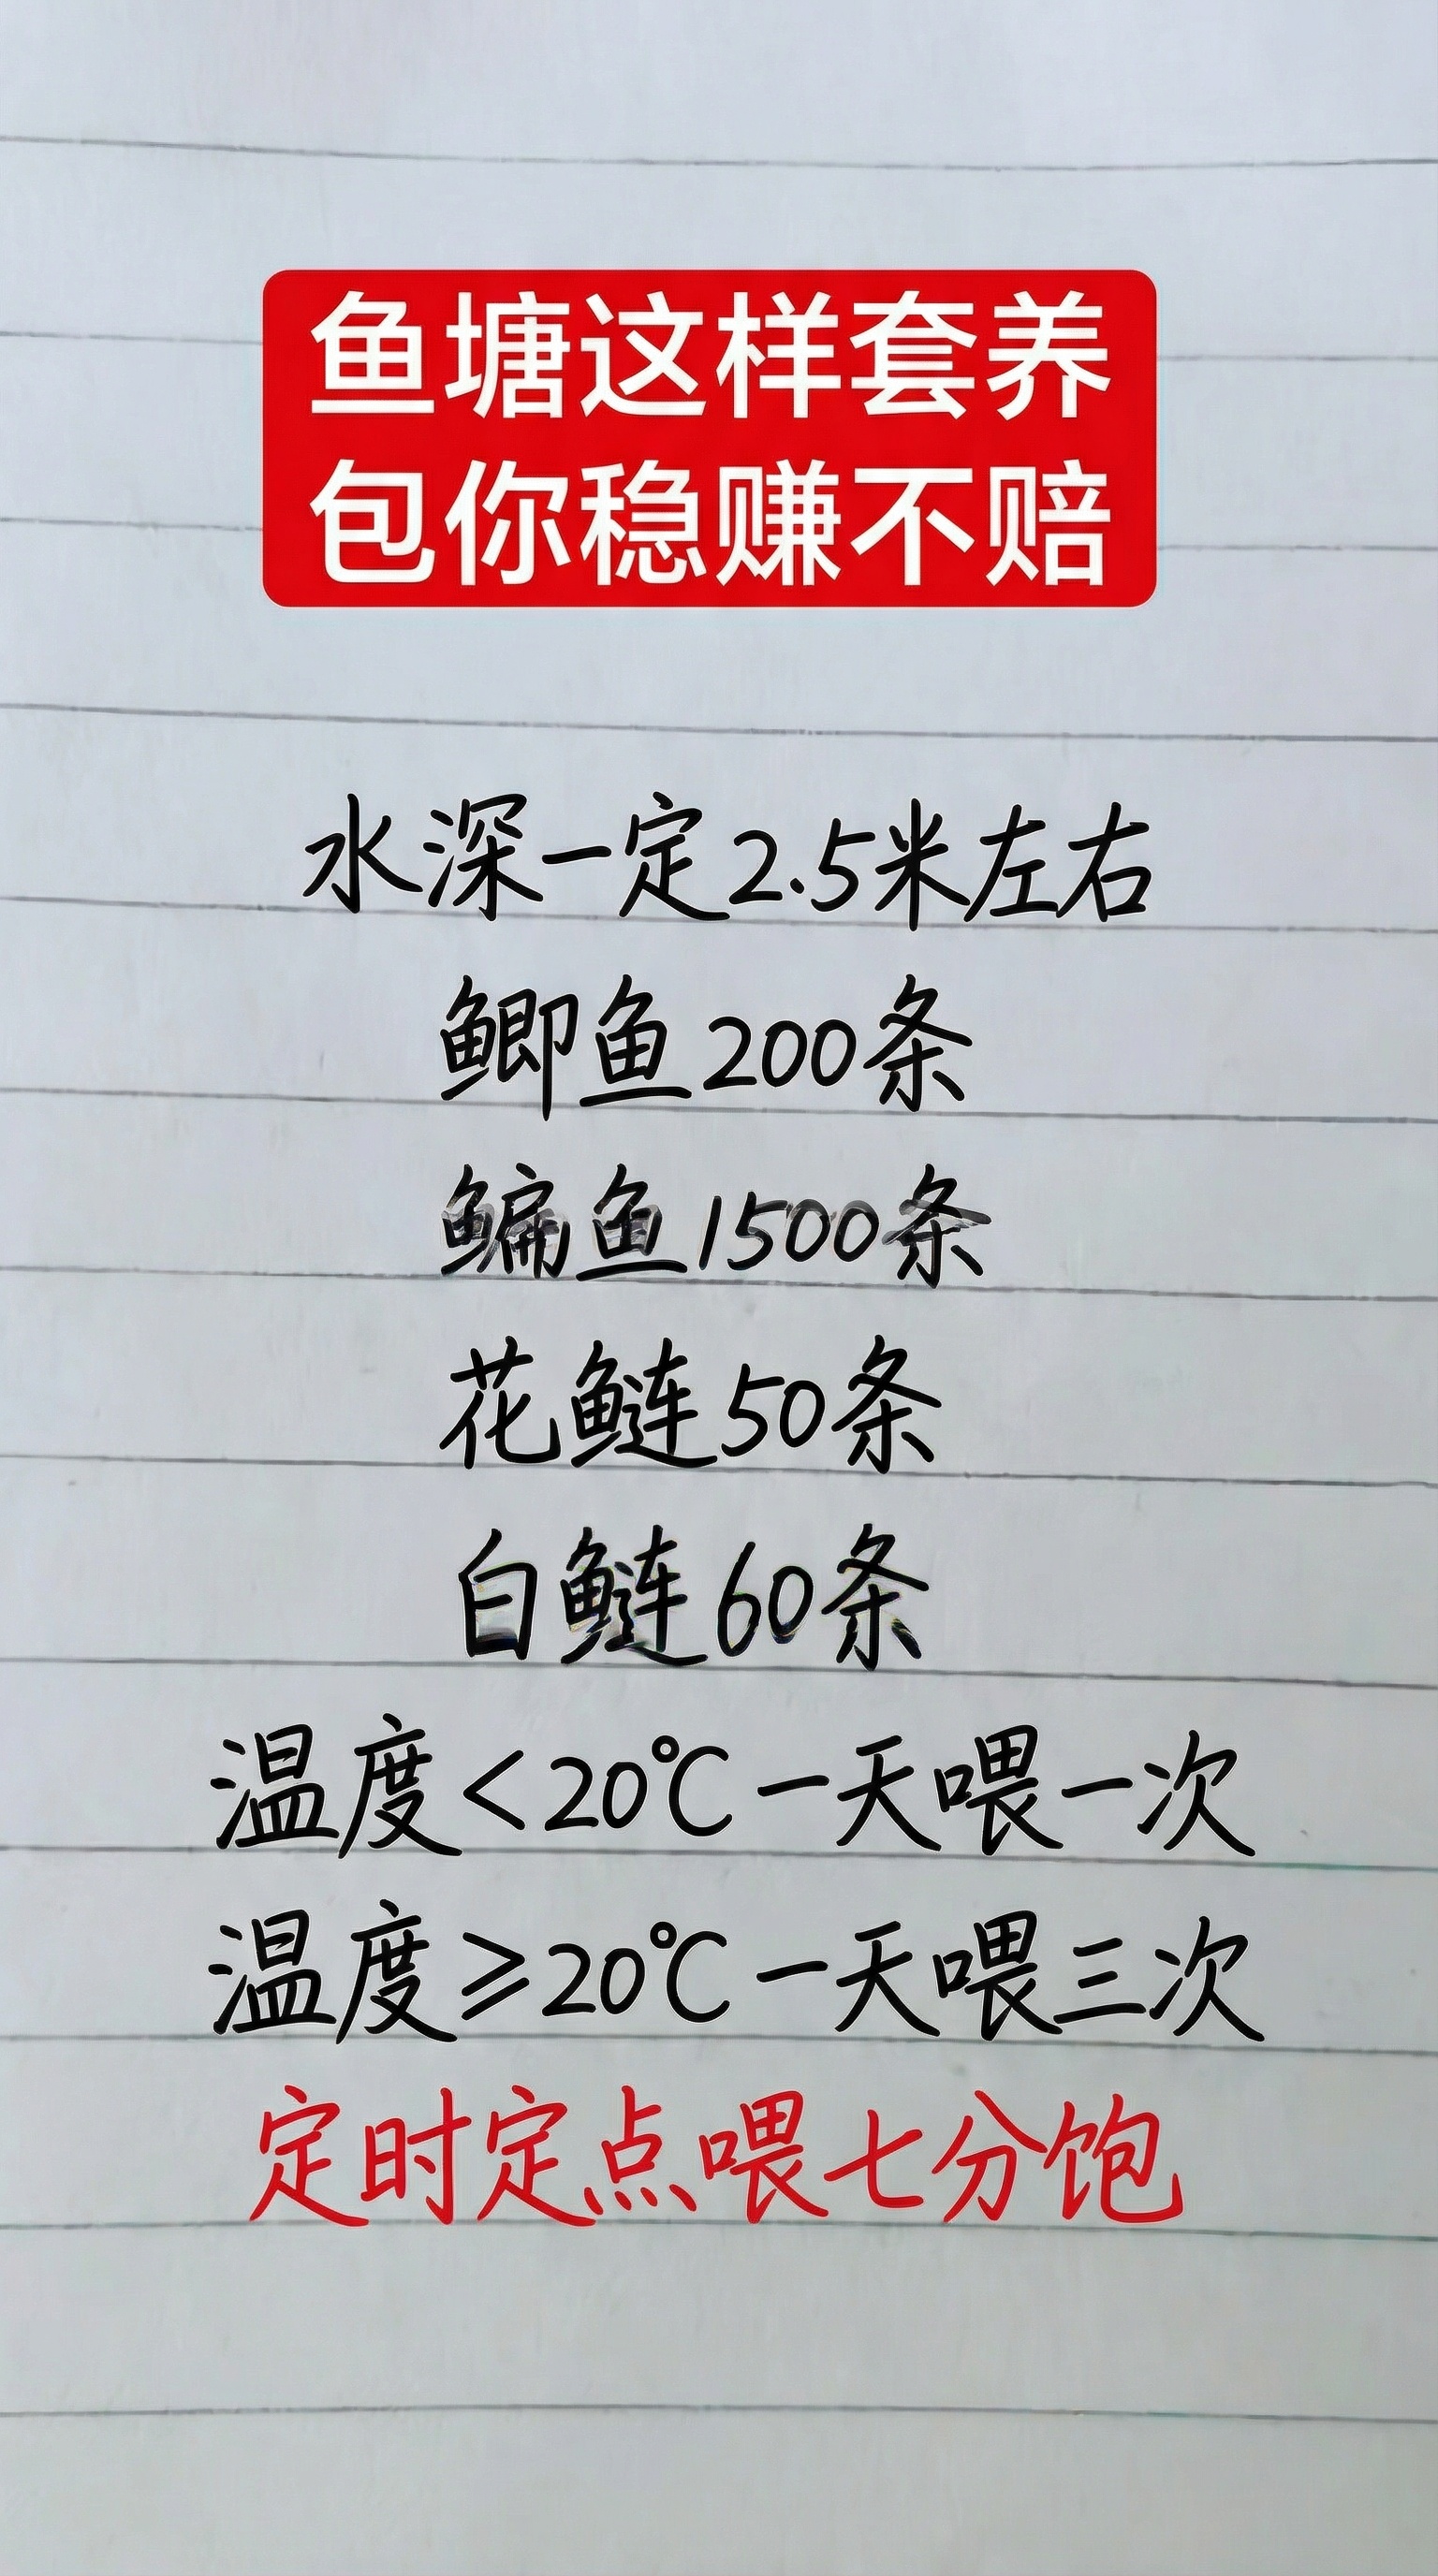 鱼塘这样套养
包你稳赚不赔
水深一定2.5米左右
鲫鱼200条
鳊鱼1500条
花鲢50条
白鲢60条
温度<20℃一天喂一次
温度≥20℃一天喂三次
定时定点喂七分饱